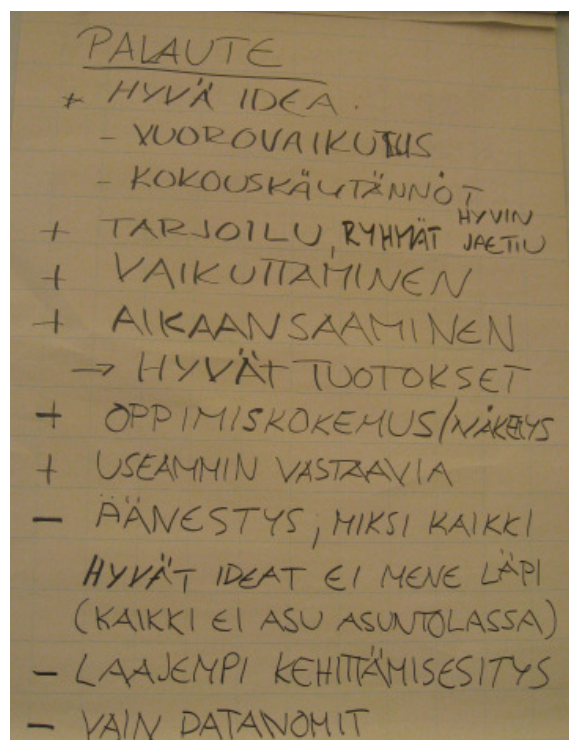 PALAUTE
+ HYVÄ IDEA.
- VUOROVAIKUTUS
- KOKOUSKÄYTÄNNÖT
+ TARJOILU, RYHMÄT HYVIN JAETTU
+ VAIKUTTAMINEN
+ AIKAANSAAMINEN
→ HYVÄT TUOTOKSET
+ OPPIMISKOKEMUS/NÄKEMYS
+ USEAMMIN VASTAAVIA
- ÄÄNESTYS, MIKSI KAIKKI
HYVÄT IDEAT EI MENE LÄPI
(KAIKKI EI ASU ASUNTOLASSA)
- LAAJEMPI KEHITTÄMISESITYS
- VAIN DATANOMIT